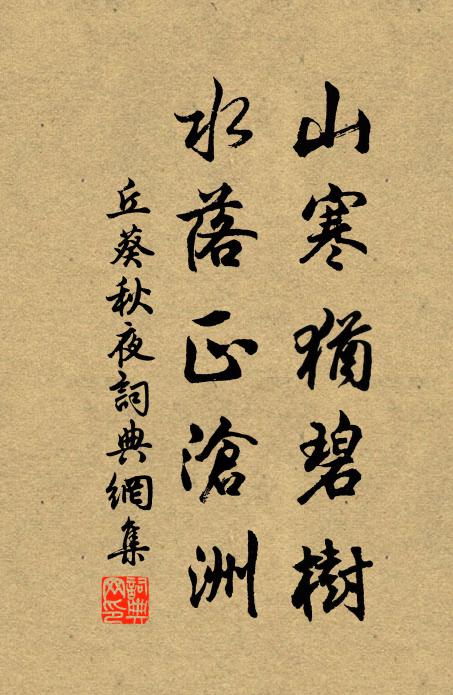 山寒猶碧樹
水落正滄洲
丘葵秋夜詞典網集
詞典網印